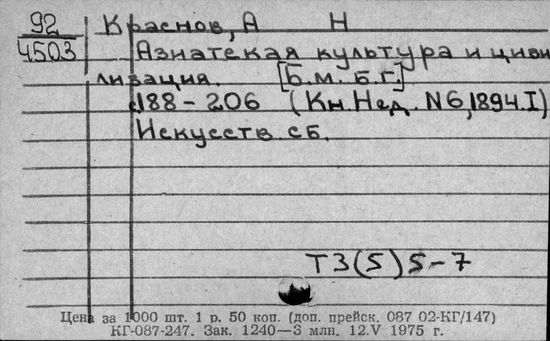 92 Краснов, А Н
4503 Азиатская культура и циви
лизация. [Б.м. б.г.]
с 188-206 (Кн. Нед. N6, 1894. I)
Искусств. сб.
Т3(5)5-7
Цена за 1000 шт. 1 р. 50 коп. (доп. прейск. 087 02-КГ/147)
КГ-087-247. Зак. 1240—3 млн. 12.V 1975 г.